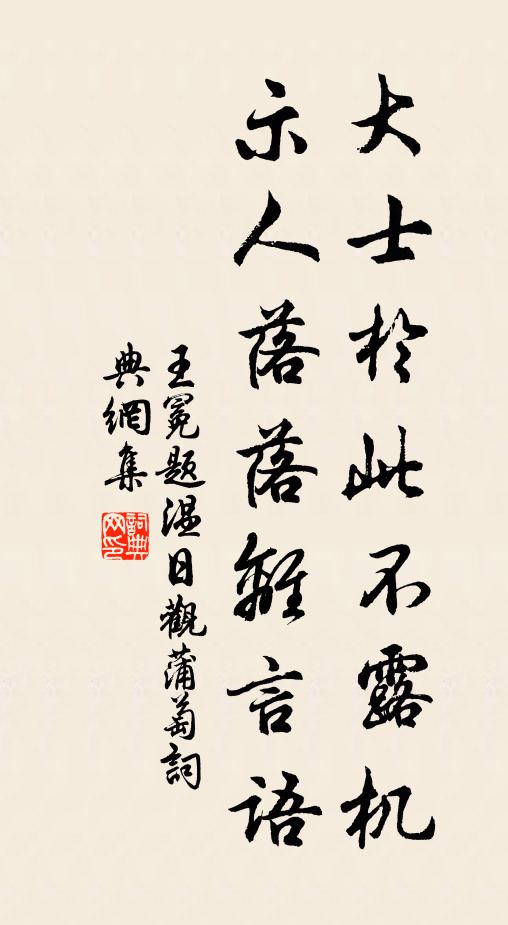 大士於此不露机
示人落落離言语
王冕题温日觀蒲萄詞
典網集
詞典網印